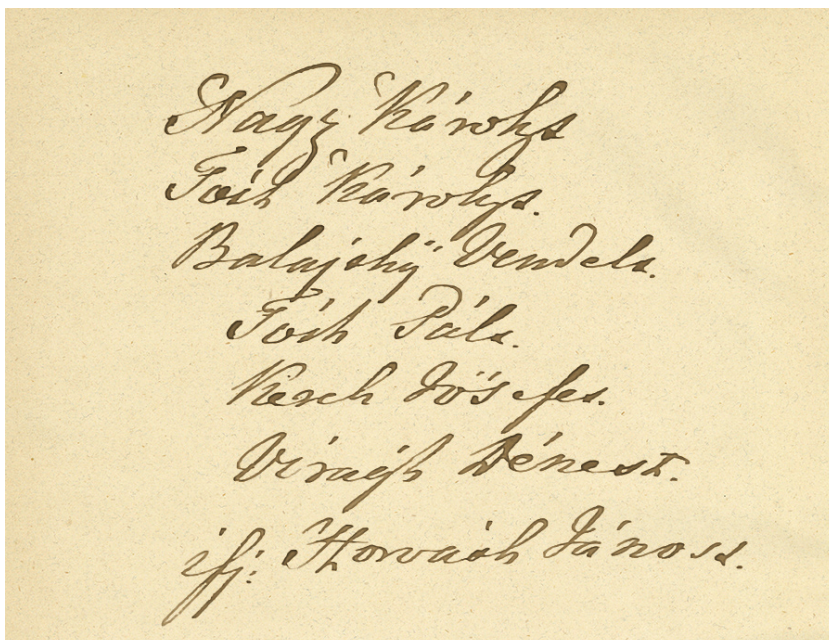 Nagy Károly s
Tóth Károly s.
Balajthÿ Vendel s.
Tóth Pál s.
Kerch József s.
Virágh Dénes s.
ifj: Horváth János s.